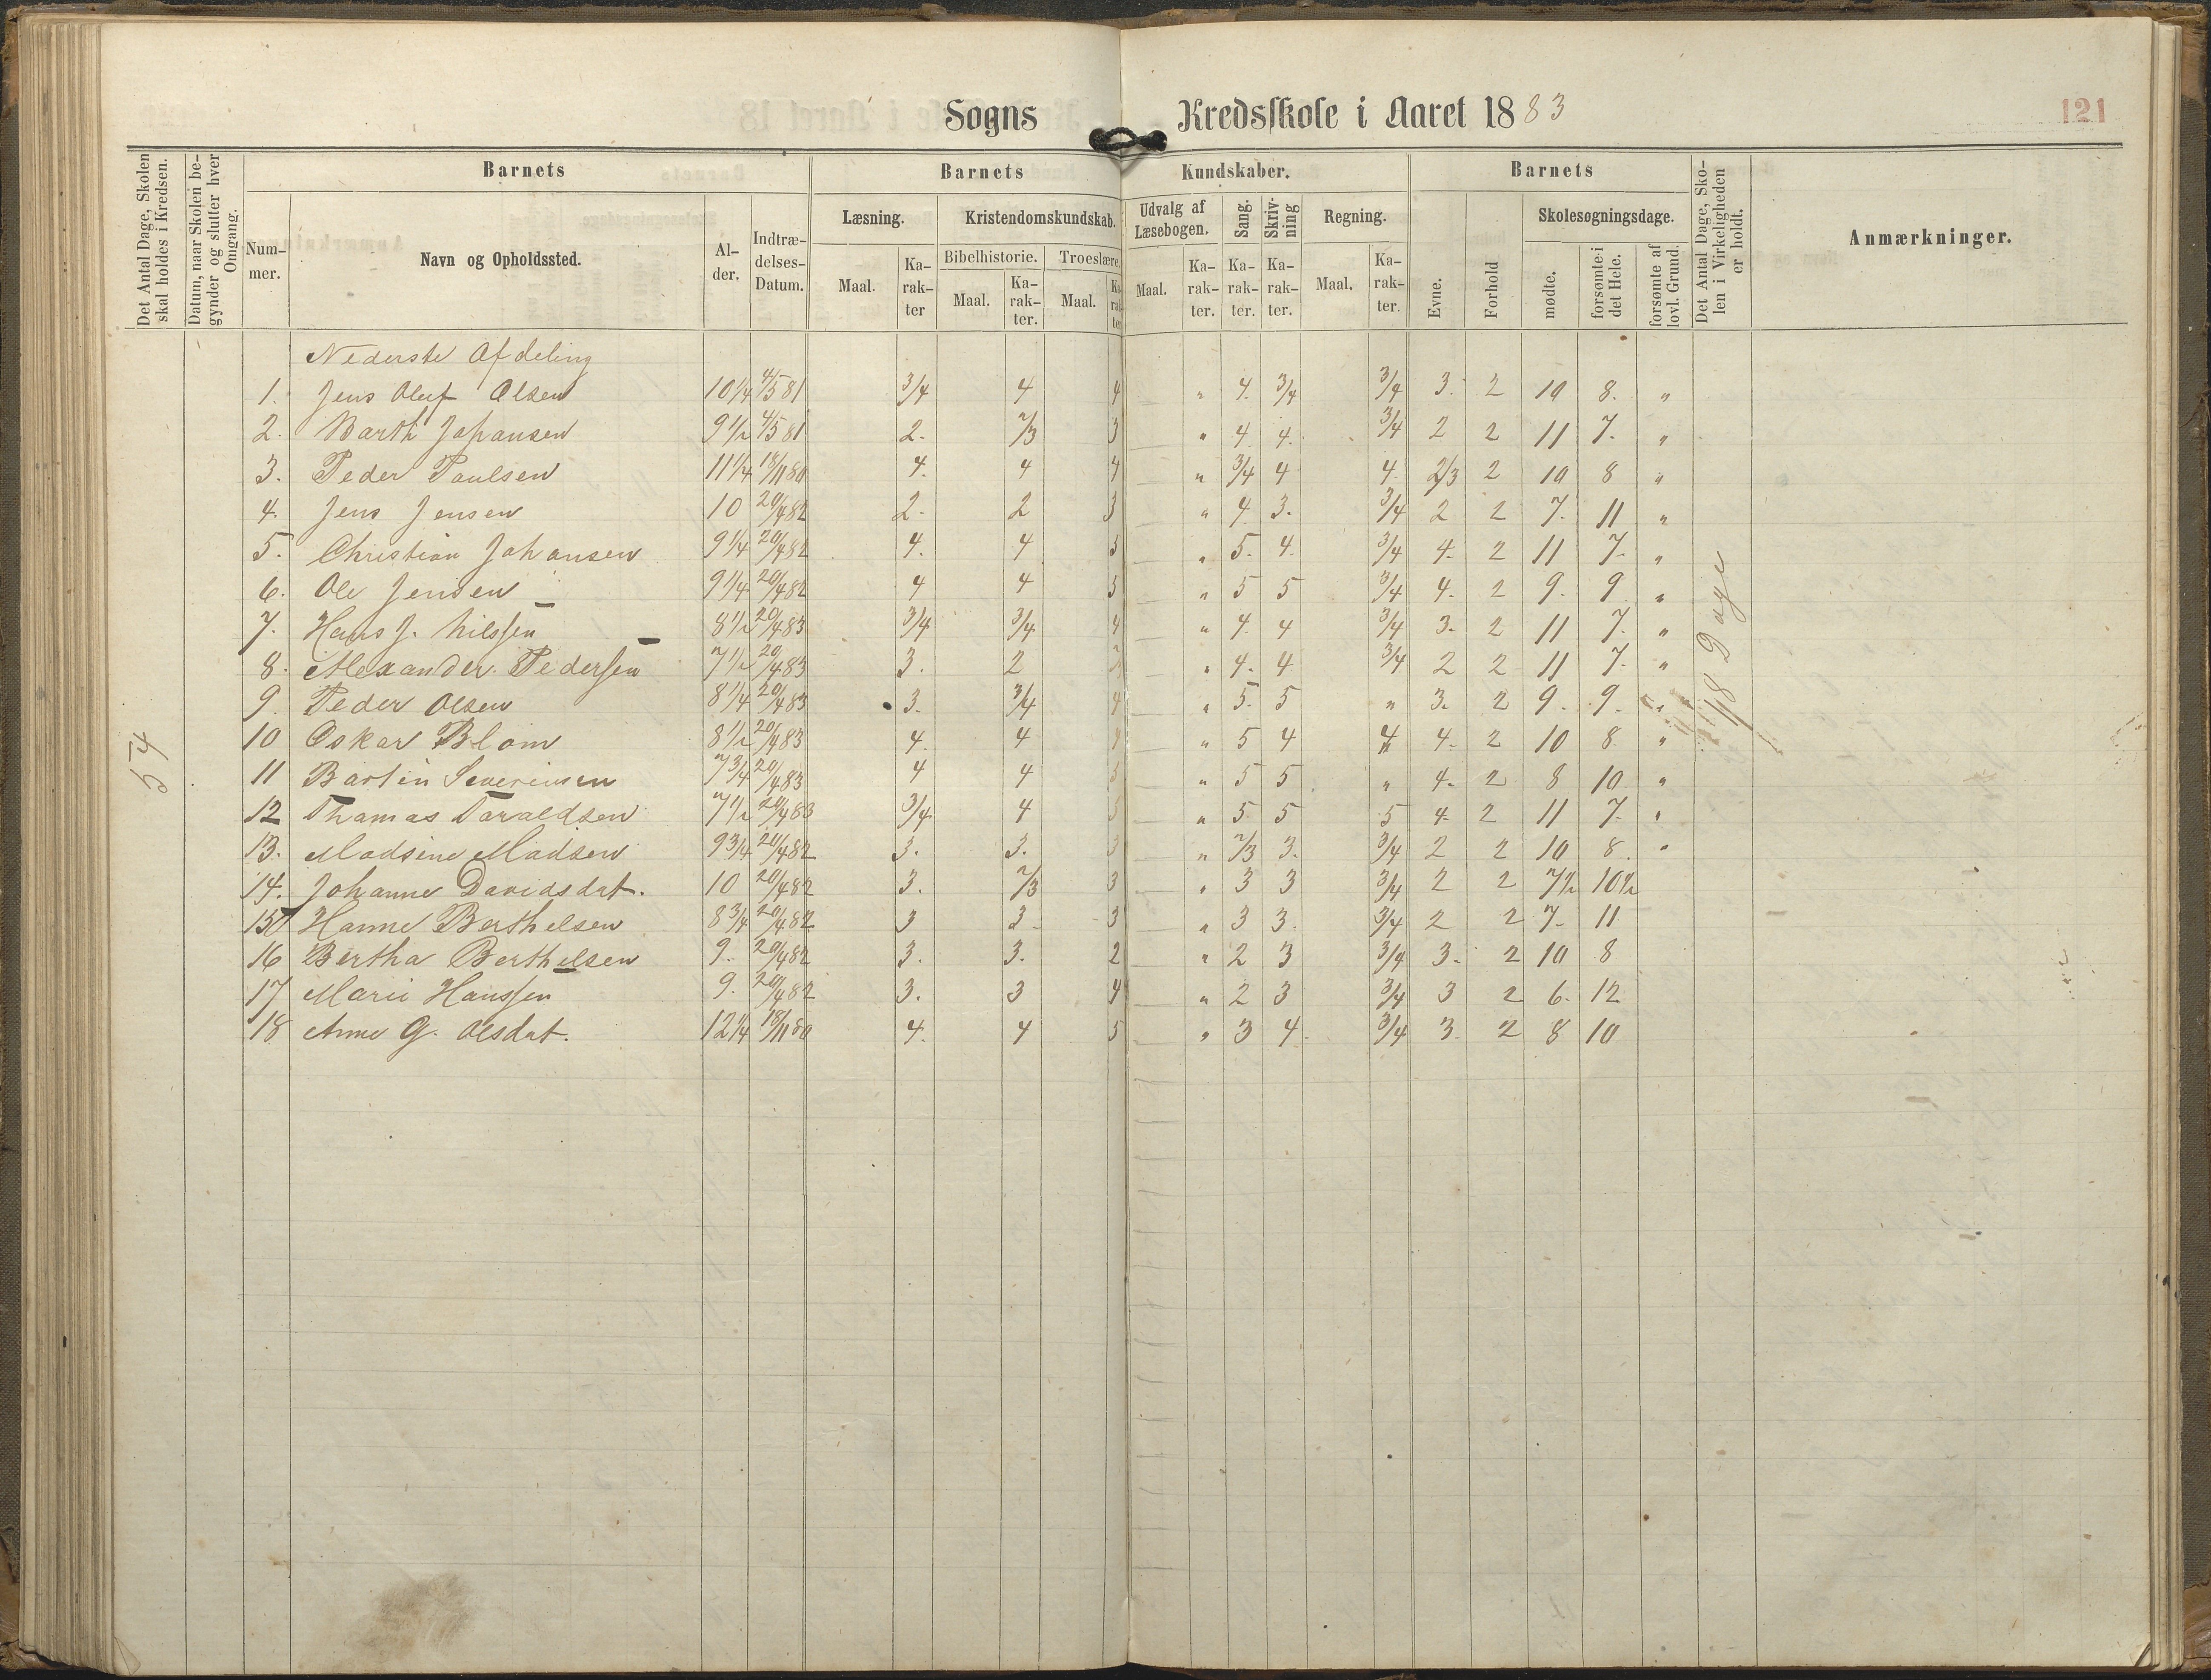 Sogns Kredsskole i Aaret 1883
121
Det Antal Dage, Skolen skal holdes i Kredsen.
Datum, naar Skolen begynder og slutter hver Omgang.
Barnets
Nummer.
Navn og Opholdssted.
Alder.
Indtrædelses-Datum.
Barnets Kundskaber.
Læsning.
Maal.
Karakter
Kristendomskundskab.
Bibelhistorie.
Maal.
Karakter.
Troeslære.
Maal.
Karakter
Udvalg af Læsebogen.
Maal.
Karakter.
Sang.
Karakter.
Skrivning
Karakter.
Regning.
Maal.
Karakter.
Barnets
Evne.
Forhold
Skolesøgningsdage.
mødte.
forsømte i det Hele.
forsømte af lovl. Grund.
Det Antal Dage, Skolen i Virkeligheden er holdt.
Anmærkninger.
54
18 Dage
Nederste Afdeling
1. Jens Oluf Olsen 10 1/4 4/5 81 3/4 4 4 " 4. 3/4 3/4 3. 2 10 8. "
2. Barth Johansen 9 1/2 4/5 81 2. 2/3 3 " 4 4. 3/4 2 2 11 7. "
3. Peder Paulsen 11 1/4 18/11 80 4. 4 4 " 3/4 4 4 2/3 2 10 8 "
4. Jens Jensen 10 20/4 82 2. 2 3 " 4 3. 3/4 2 2 7. 11 "
5. Christian Johansen 9 1/4 20/4 82 4. 4 5 " 5. 4. 3/4 4. 2 11 7. "
6. Ole Jensen 9 1/4 20/4 82 4 4 5 " 5 5 3/4 4. 2 9. 9 "
7. Hans J. Nilssen 8 1/2 20/4 83 3/4 3/4 4 " 4. 4 3/4 3. 2 11 7. "
8. Alexander Pedersen 7 1/2 20/4 83 3. 2 " 4. 4 3/4 2 2 11 7. "
9. Peder Olsen 8 1/4 20/4 83 3. 3/4 4 " 5. 5 " 3. 2 9. 9. "
10 Oskar Blom 8 1/2 20/4 83 4. 4 4 " 5 4 4. 2 10 8 "
11 Bartin Severinsen 7 3/4 20/4 83 4 4 5 " 5 5 " 4. 2 8 10 "
12 Thomas Taraldsen 7 1/2 20/4 83 3/4 4 5 " 5 5 5 4. 2 11 7. "
13. Madsine Madsen 9 3/4 20/4 82 3. 3. 3 " 2/3 3. 3/4 2 2 10 8. "
14. Johanne Davidsdat. 10 20/4 82 3. 2/3 3 " 3 3 3/4 2 2 7 1/2 10 1/2
15 Hanne Berthelsen 8 3/4 20/4 82 3 3. 3 " 3 3. 3/4 2 2 7. 11
16 Bertha Berthelsen 9. 20/4 82 3. 3. 2 " 2 3 3/4 3. 2 10 8
17 Marie Hanssen 9. 20/4 82 3. 3 4 " 2 3 3/4 3 2 6. 12
18 Anne G. Olsdat. 12 1/4 18/11 80 4. 4 5 " 3 4. 3/4 3. 2 8 10